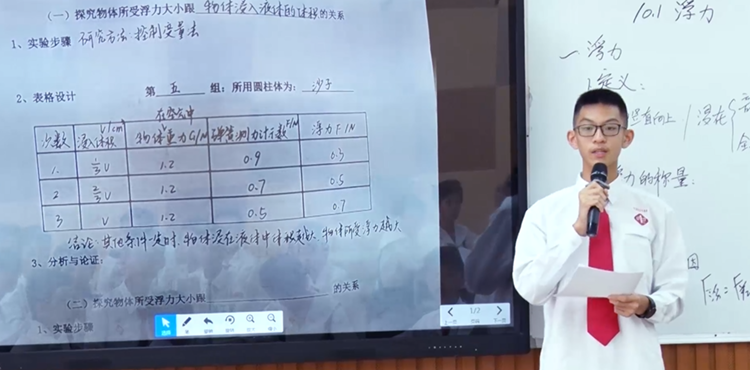 （一）探究物体所受浮力大小跟 物体浸入液体的体积 的关系
1、实验步骤 研究方法:控制变量法
2、表格设计 第 五 组；所用圆柱体为： 沙子
在空气中
次数 浸入体积 V/cm³ 物体重力G/N 弹簧测力计示数F/N 浮力F/N
1. 1/3 V 1.2 0.9 0.3
2 2/3 V 1.2 0.7 0.5
3 V 1.2 0.5 0.7
结论:其他条件一定时,物体浸在液体中体积越大,物体所受浮力越大
3、分析与论证:
（二）探究物体所受浮力大小跟 的关系
1、实验步骤
1/2
10.1 浮力
一 浮力
1.定义:
竖直向上
浸在
力的称量: